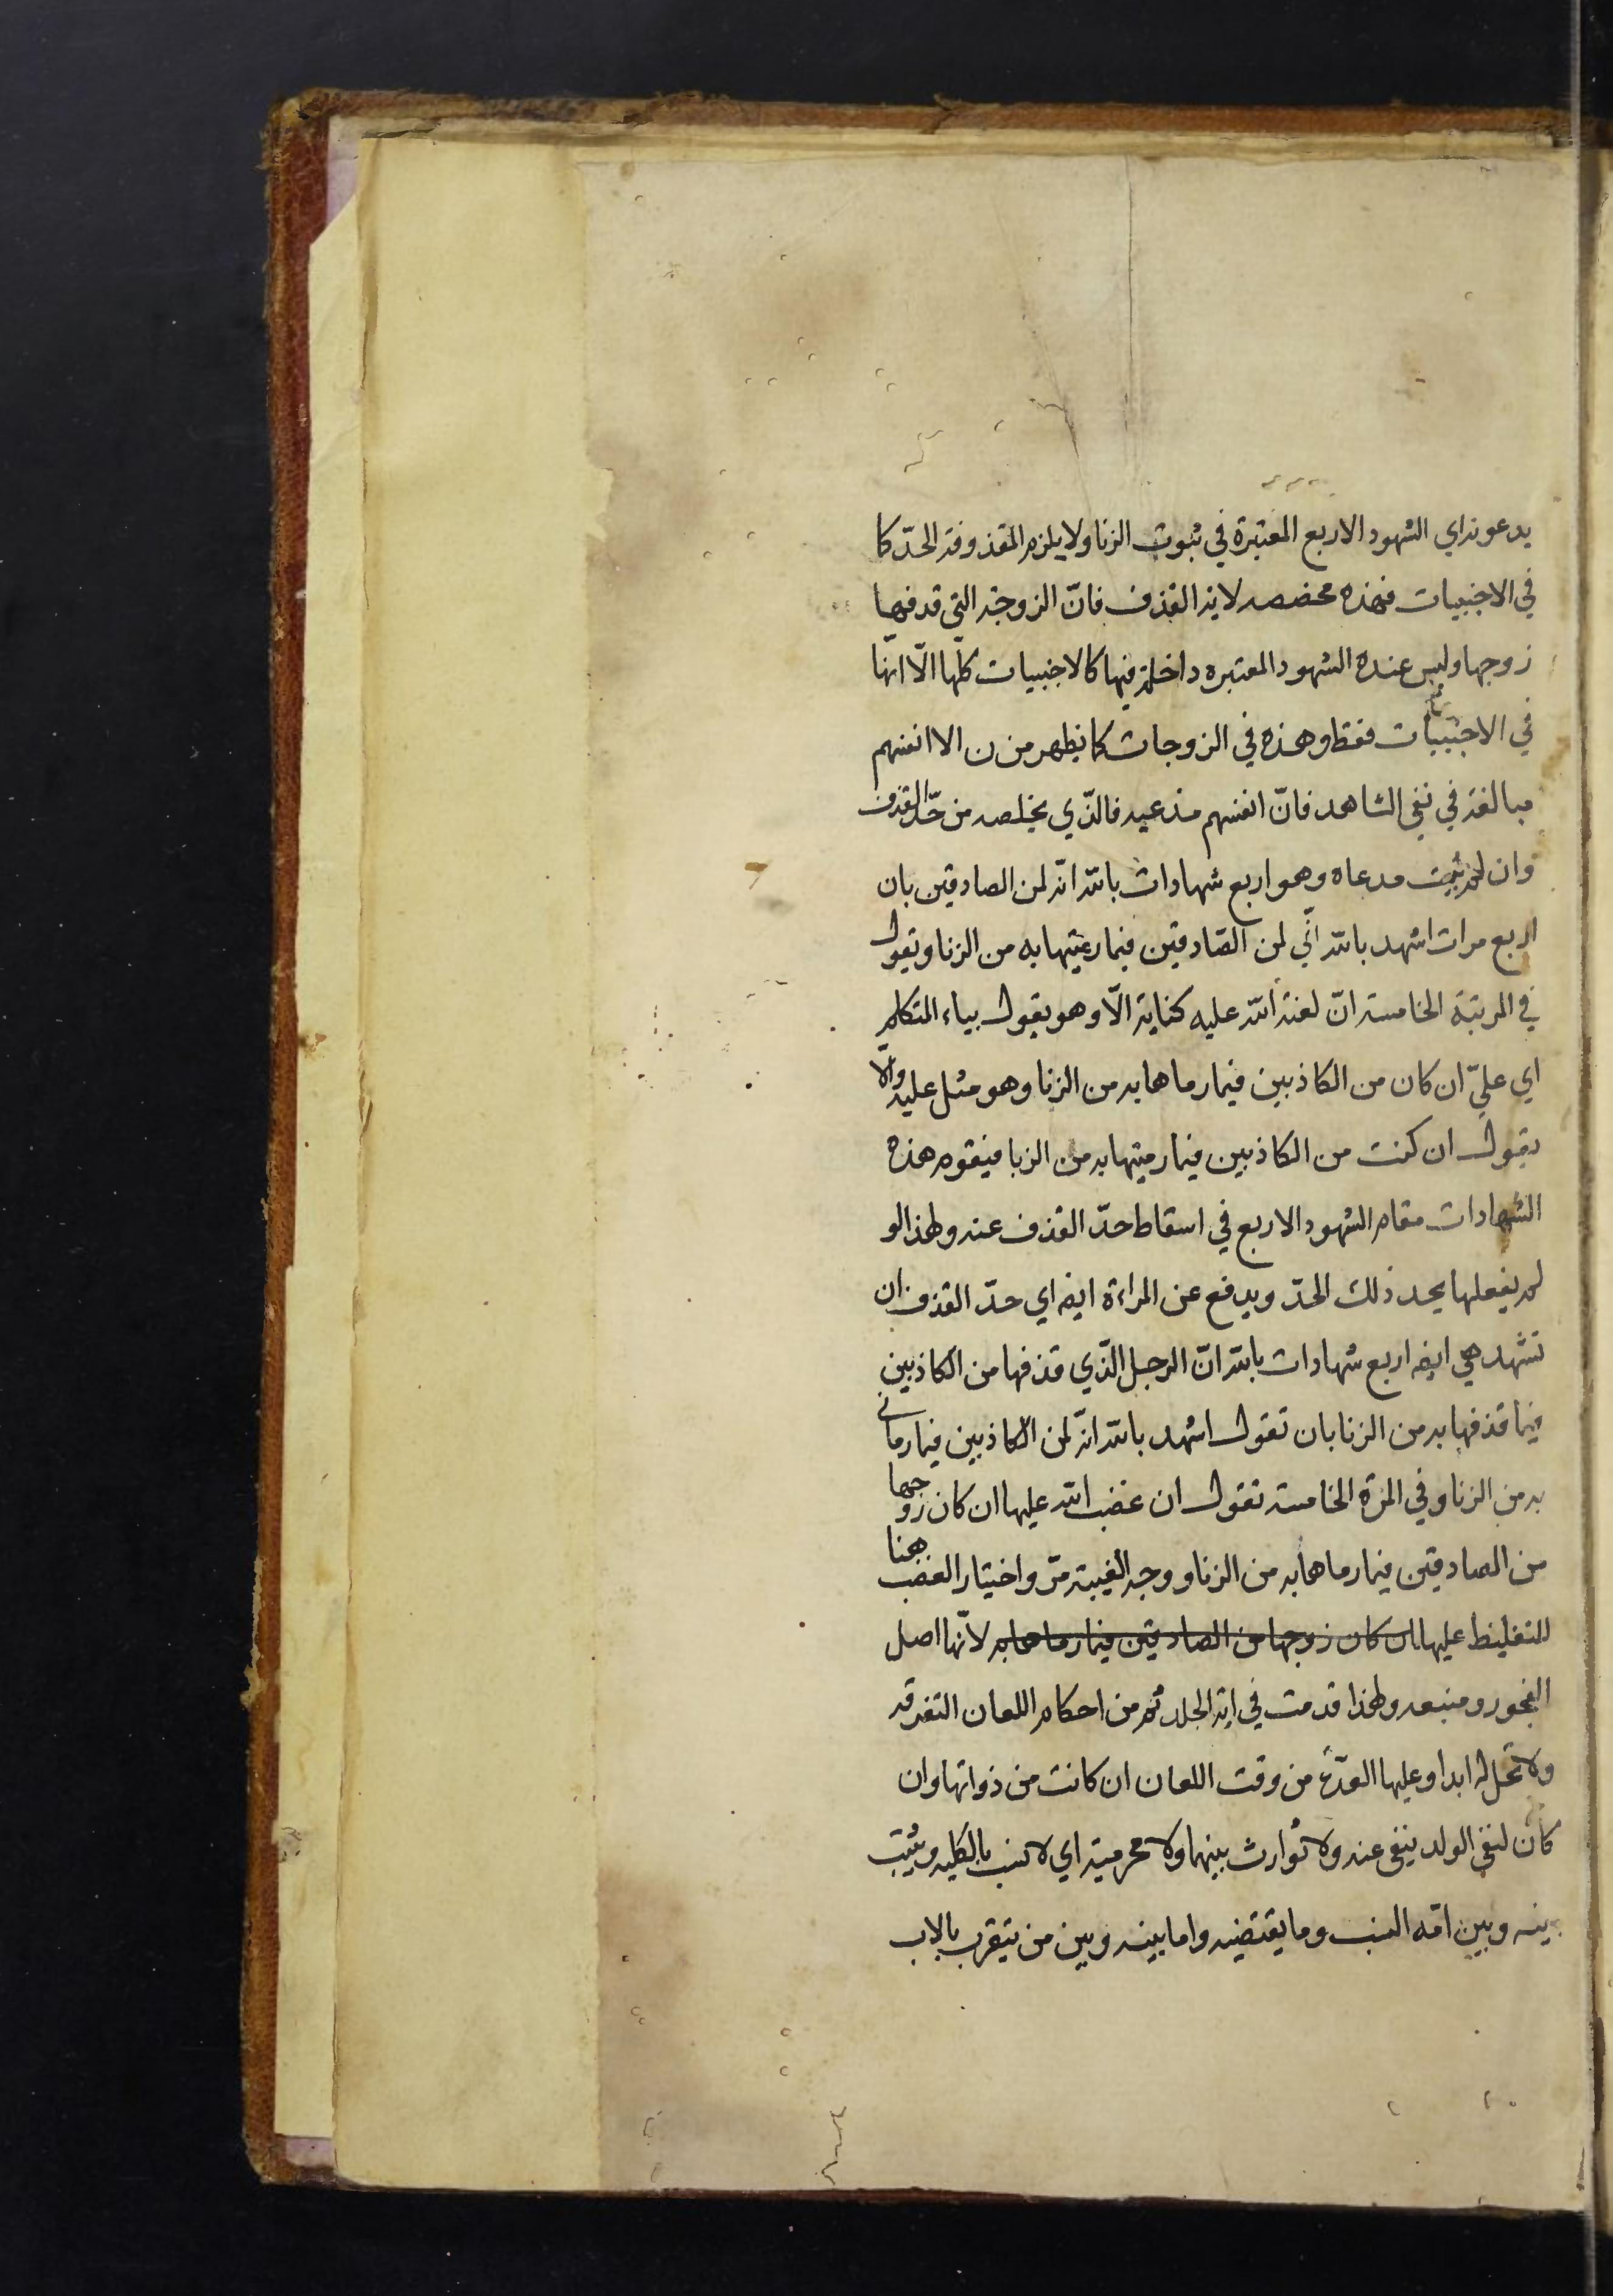 يدعونه اي الشهود الاربع المعتبرة في ثبوت الزنا ولا يلزم المقذوفة الحدّ كما
في الاجنبيات فهذه مخصصه لاية القذف فانّ الزوجة التي قذفها
زوجها وليس عنده الشهود المعتبره داخلة فيها كالاجنبيات كلّها الّا انّها
في الاجنبيات فقط وهذه في الزوجات كما يظهر من ن الا انفسهم
مبالغة في نفي الشاهد فانّ انفسهم مدعيه فالذّي يخلصه من حدّ القذف
وان لم يثبت مدعاه وهو اربع شهادات بالله انّه لمن الصادقين بان
اربع مرات اشهد بالله انّي لمن الصّادقين فيما رميتها به من الزنا ويقول
في المرتبة الخامسة انّ لعنة الله عليه كناية الّا وهو يقول بياء المتكلم
اي عليّ ان كان من الكاذبين فيما رماها به من الزنا وهو مثل عليه والّا
يقول ان كنت من الكاذبين فيما رميتها به من الزنا فيقوم هذه
الشهادات مقام الشهود الاربع في اسقاط حدّ القذف عنه ولهذا لو
لم يفعلها يحد ذلك الحدّ ويدفع عن المراءة ايضه اي حدّ القذف ان
تشهد هي ايضه اربع شهادات بالله انّ الرجل الذّي قذفها من الكاذبين
فيما قذفها به من الزنا بان تقول اشهد بالله انّه لمن الكاذبين فيما رماني
به من الزنا وفي المرّة الخامسة تقول ان غضب الله عليها ان كان زوجها
من الصادقين فيما رماها به من الزنا ووجه الغيبة مرّ واختيار الغضب هنا
للتغليظ عليها ان كان زوجها من الصادقين فيما رماها به لانّها اصل
الفجور ومنبعه ولهذا قدمت في اية الجلد ثم من احكام اللعان التفرقه
ولا تحلّ له ابدا وعليها العدّة من وقت اللعان ان كانت من ذواتها وان
كان لنفي الولد ينفى عنه ولا توارث بينهما ولا محرمية اي لا نسب بالكليه ويثبت
بينه وبين امّه النسب وما يقتضيه واما بينه وبين من يتقرب بالاب